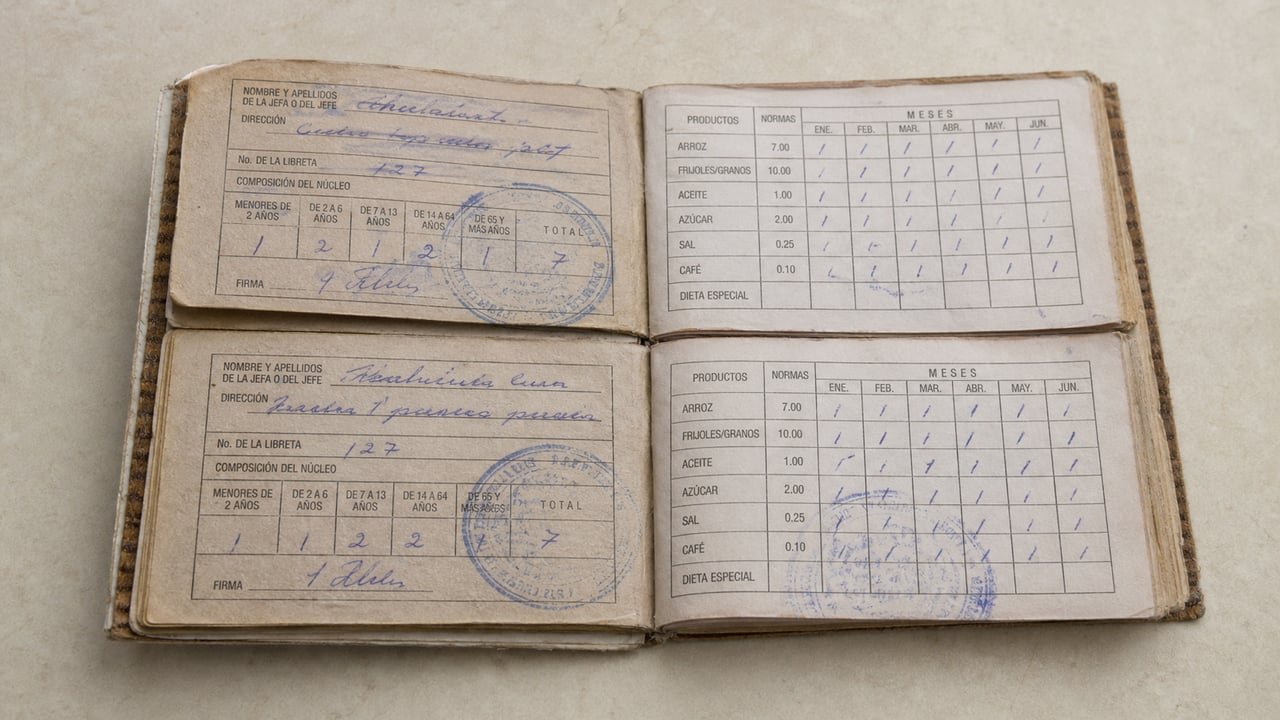 NOMBRE Y APELLIDOS
DE LA JEFA O DEL JEFE
DIRECCIÓN
No. DE LA LIBRETA 127
COMPOSICIÓN DEL NÚCLEO
MENORES DE 2 AÑOS DE 2 A 6 AÑOS DE 7 A 13 AÑOS DE 14 A 64 AÑOS DE 65 Y MÁS AÑOS TOTAL
1 2 1 2 1 7
FIRMA
PRODUCTOS NORMAS MESES
ENE. FEB. MAR. ABR. MAY. JUN.
ARROZ 7.00 / / / / / /
FRIJOLES/GRANOS 10.00 / / / / / /
ACEITE 1.00 / / / / / /
AZÚCAR 2.00 / / / / / /
SAL 0.25 / / / / / /
CAFÉ 0.10 / / / / / /
DIETA ESPECIAL
NOMBRE Y APELLIDOS
DE LA JEFA O DEL JEFE
DIRECCIÓN
No. DE LA LIBRETA 127
COMPOSICIÓN DEL NÚCLEO
MENORES DE 2 AÑOS DE 2 A 6 AÑOS DE 7 A 13 AÑOS DE 14 A 64 AÑOS DE 65 Y MÁS AÑOS TOTAL
1 1 2 2 1 7
FIRMA
PRODUCTOS NORMAS MESES
ENE. FEB. MAR. ABR. MAY. JUN.
ARROZ 7.00 / / / / / /
FRIJOLES/GRANOS 10.00 / / / / / /
ACEITE 1.00 / / / / / /
AZÚCAR 2.00 / / / / / /
SAL 0.25 / / / / / /
CAFÉ 0.10 / / / / / /
DIETA ESPECIAL